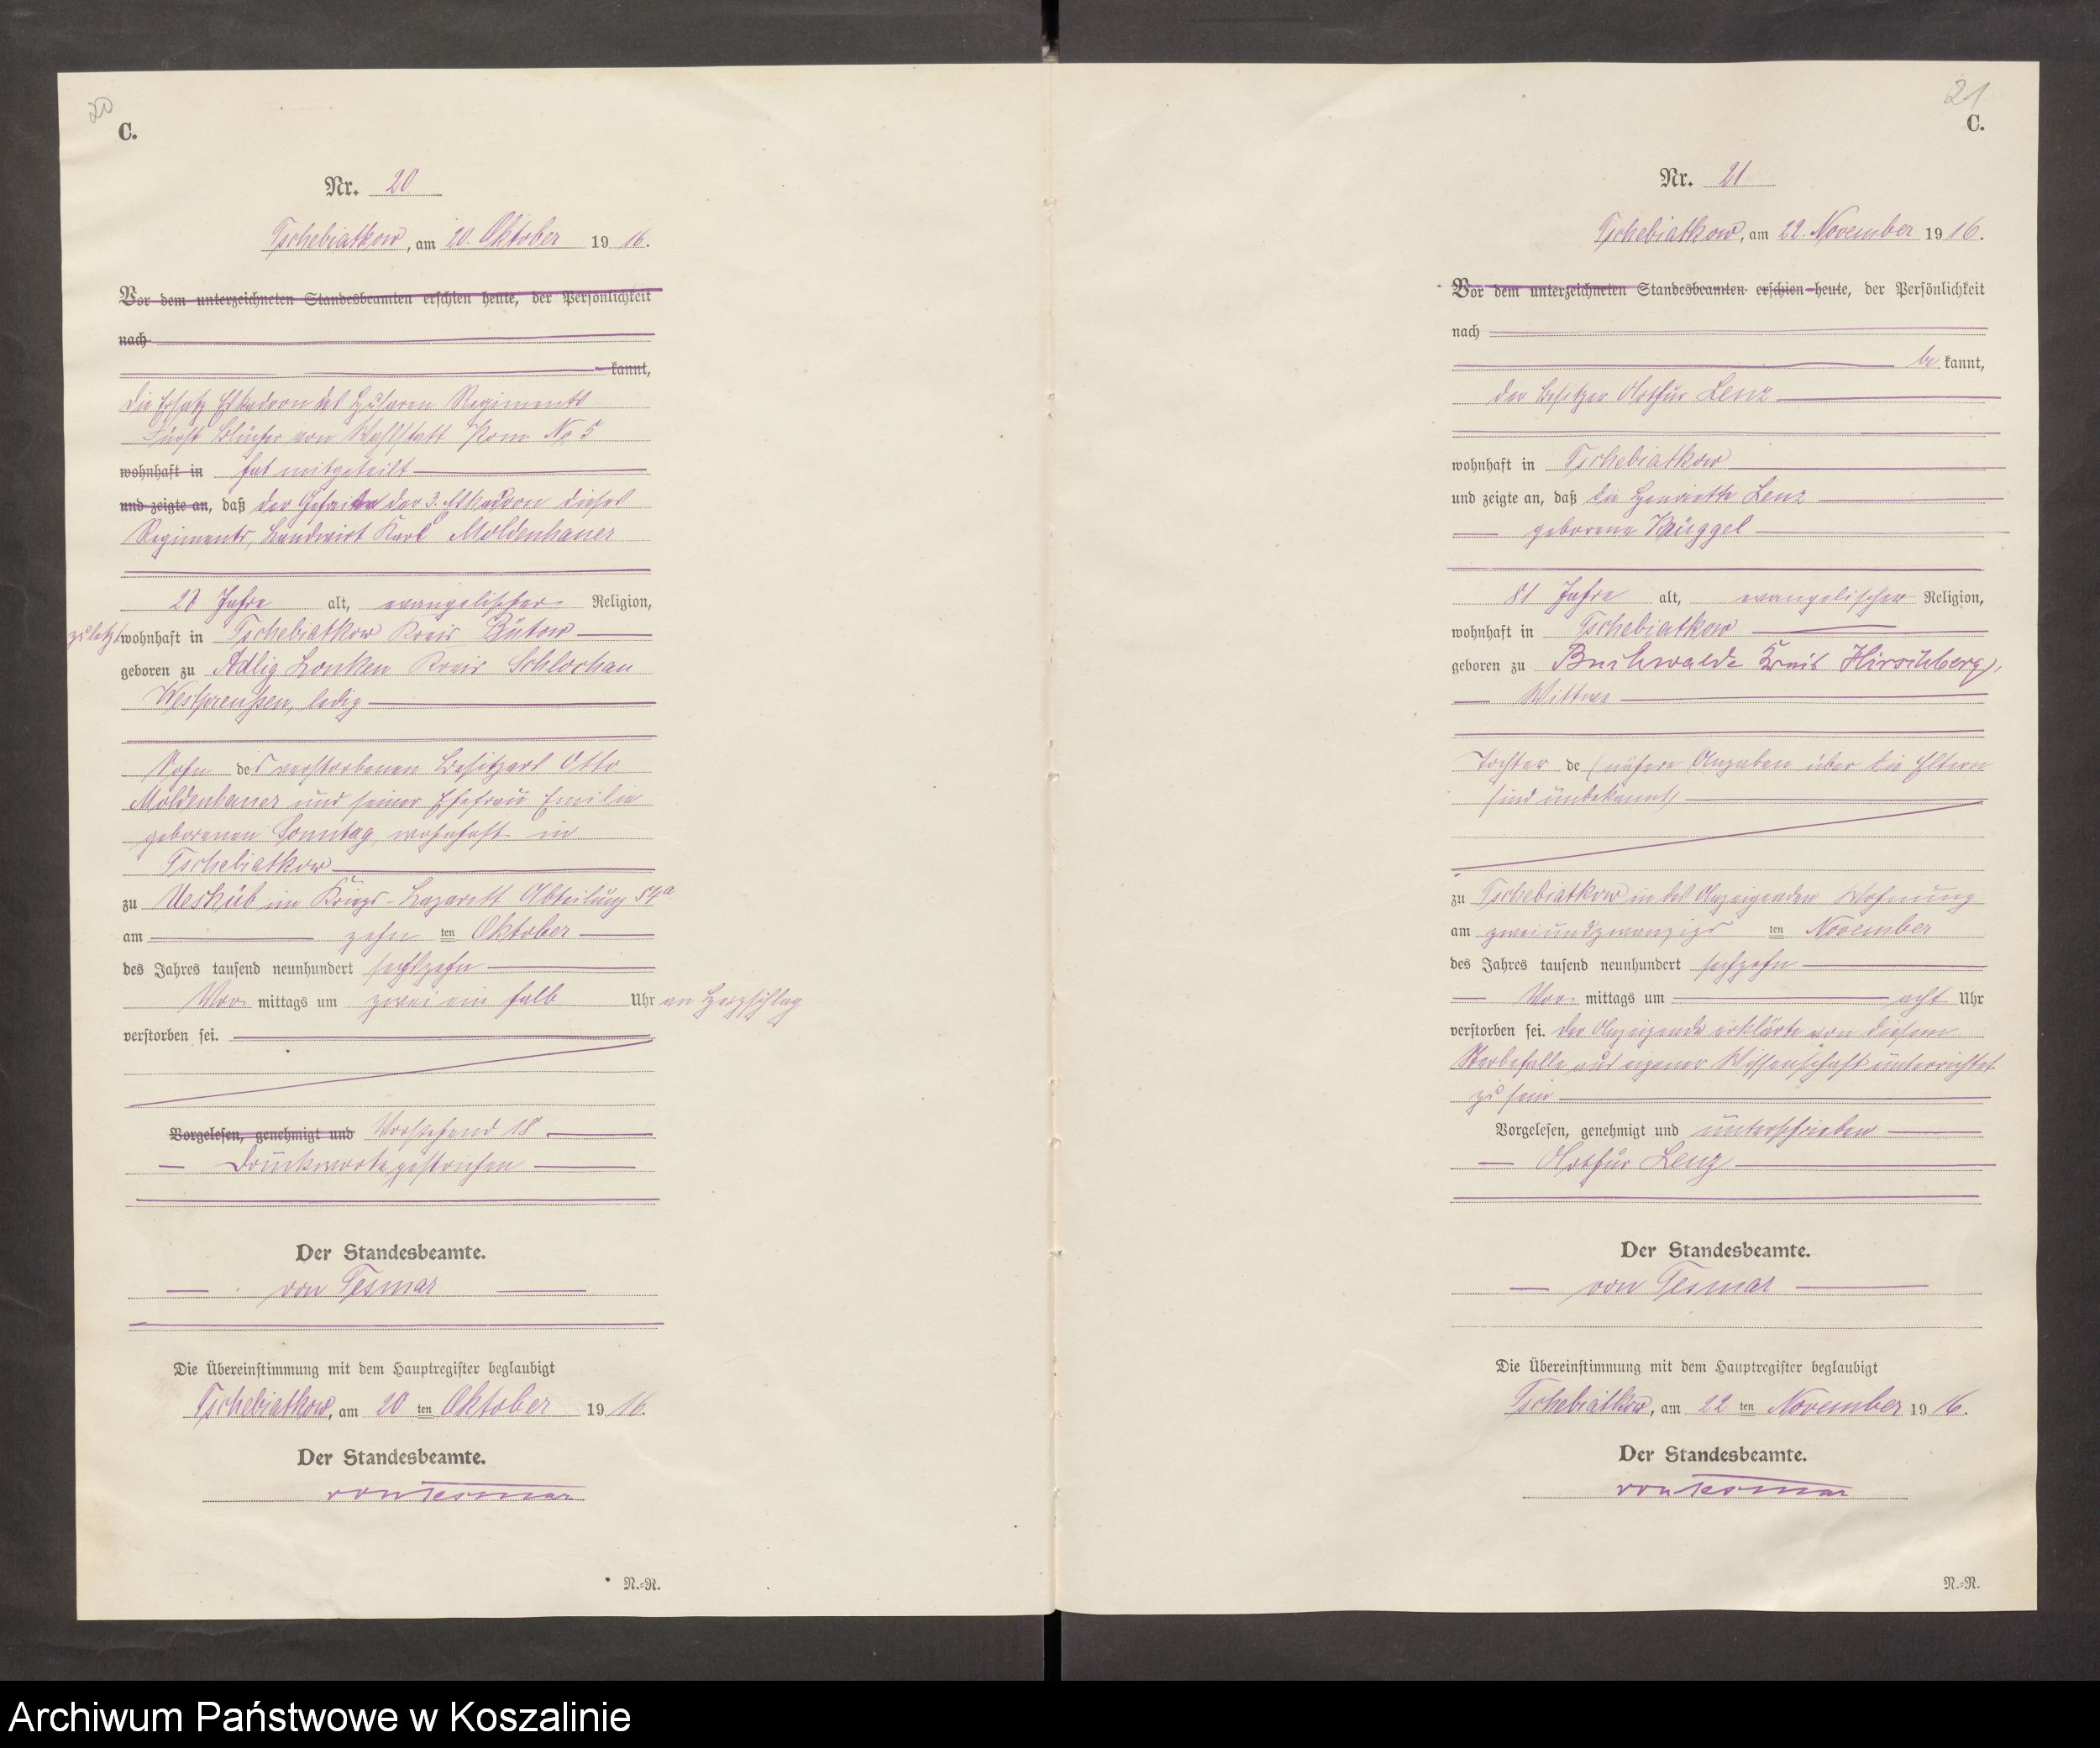 20
C.
Nr. 20
Tschebiatkow, am 20. Oktober 1916.
Vor dem unterzeichneten Standesbeamten erschien heute, der Persönlichkeit
nach
kannt,
die Ersatz Eskadron des Husaren Regiments
Fürst Blücher von Wahlstatt Pom. No 5
wohnhaft in hat mitgeteilt
und zeigte an, daß der Gefreite der 3. Eskadron dieses
Regiments, Landwirt Karl Moldenhauer
Jahre alt, evangelischer Religion,
zuletzt wohnhaft in Tschebiatkow Kreis Bütow
geboren zu Adlig Lonken Kreis Schlochau
Westpreußen, ledig
Sohn des verstorbenen Besitzers Otto
Moldenhauer und seiner Ehefrau Emilie
geborenen Sonntag wohnhaft in
Tschebiatkow
zu Ueskub im Kriegs-Lazarett Abteilung 54a
am zehn ten Oktober
des Jahres tausend neunhundert sechszehn
Vor mittags um zwei ein halb Uhr an Herzschlag
verstorben sei.
Vorgelesen, genehmigt und Vorstehend 18
Druckworte gestrichen
Der Standesbeamte.
von Tesmar
Die Übereinstimmung mit dem Hauptregister beglaubigt
Tschebiatkow, am 20 ten Oktober 1916.
Der Standesbeamte.
von Tesmar
N.-R.
21
C.
Nr. 21
Tschebiatkow, am 22. November 1916.
Vor dem unterzeichneten Standesbeamten erschien heute, der Persönlichkeit
nach
be kannt,
der Besitzer Arthur Lenz
wohnhaft in Tschebiatkow
und zeigte an, daß die Henriette Lenz
geborene
81 Jahre alt, evangelischer Religion,
wohnhaft in Tschebiatkow
geboren zu Buchwalde Kreis Hirschberg,
Wittwe
Tochter de (nähere Angaben über die Eltern
sind unbekannt)
zu Tschebiatkow in des Anzeigenden Wohnung
am zweiundzwanzigs ten November
des Jahres tausend neunhundert sechzehn
Vor mittags um acht Uhr
verstorben sei. Der Anzeigende erklärte von diesem
Sterbefalle aus eigener Wissenschaft unterrichtet
zu sein
Vorgelesen, genehmigt und unterschrieben
Arthur Lenz
Der Standesbeamte.
von Tesmar
Die Übereinstimmung mit dem Hauptregister beglaubigt
Tschebiatkow, am 22 ten November 1916.
Der Standesbeamte.
von Tesmar
N.-R.
Archiwum Państwowe w Koszalinie